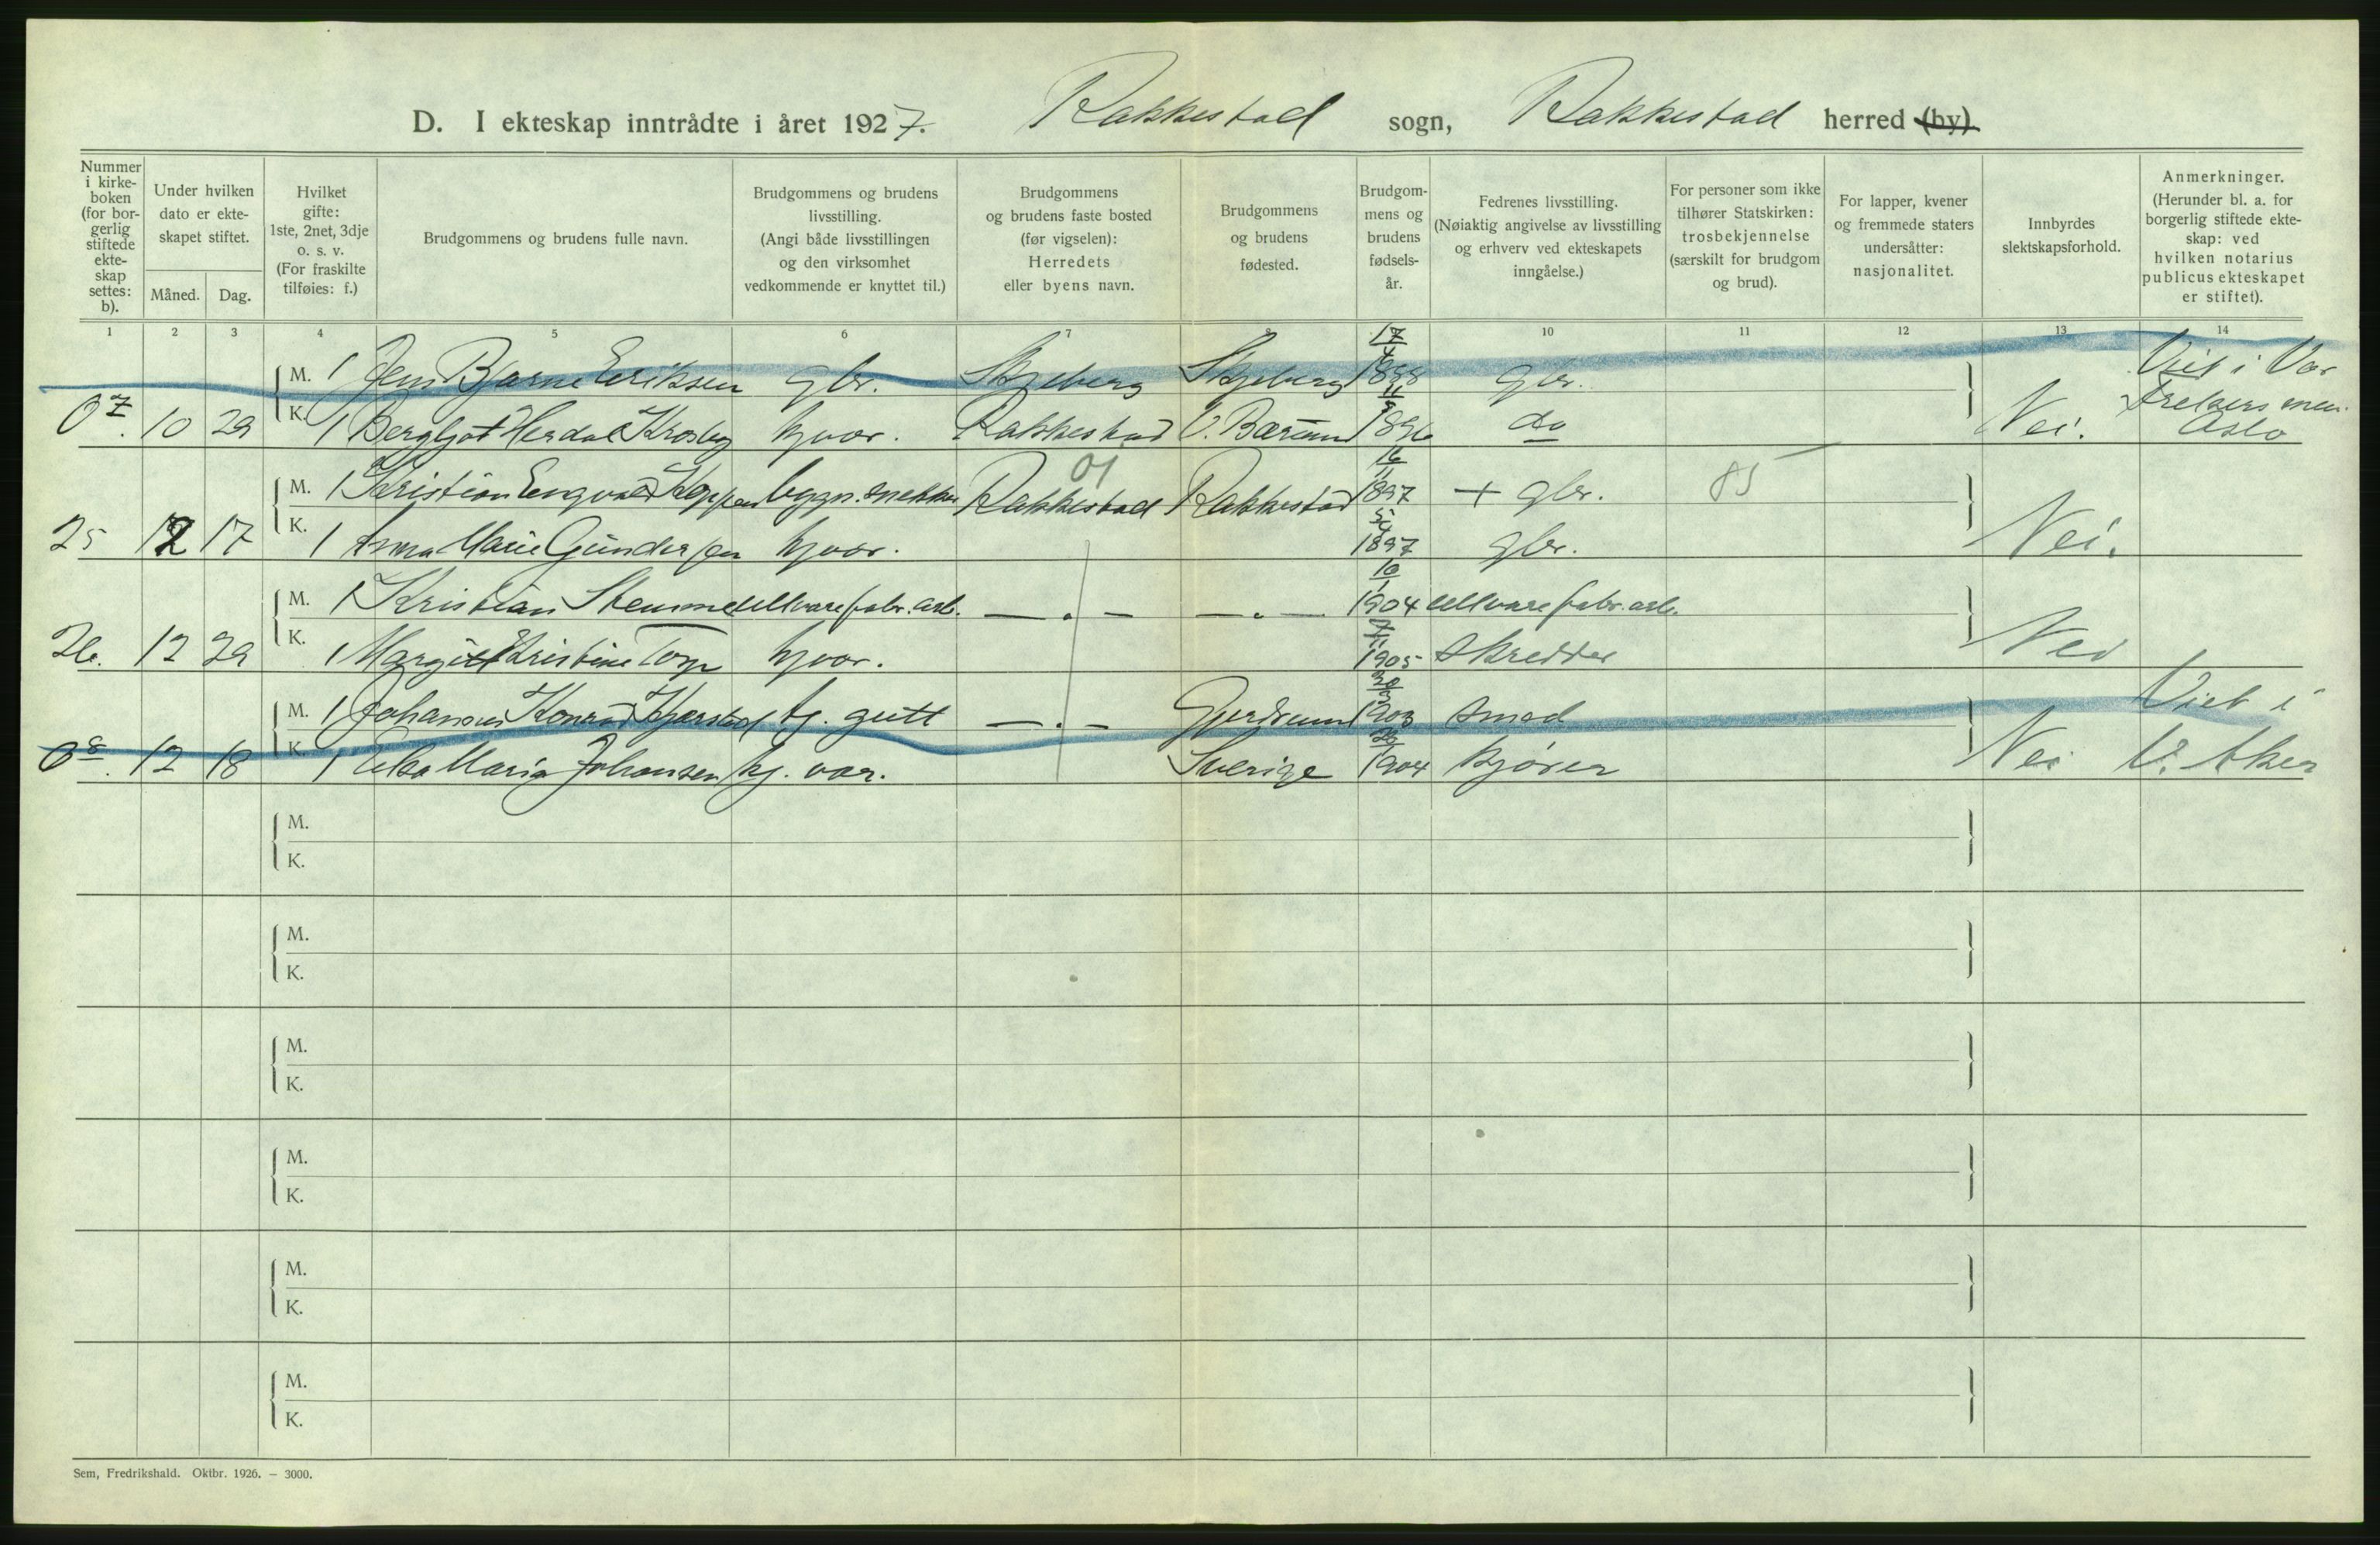 D. I ekteskap inntrådte i året 1927. Rakkestad sogn, Rakkestad herred (by)
Nummer i kirke-boken (for bor-gerlig stiftede ekte-skap settes: b).
Under hvilken dato er ekte-skapet stiftet.
Måned. Dag.
Hvilket gifte: 1ste, 2net, 3dje o. s. v. (For fraskilte tilføies: f.)
Brudgommens og brudens fulle navn.
Brudgommens og brudens livsstilling. (Angi både livsstillingen og den virksomhet vedkommende er knyttet til.)
Brudgommens og brudens faste bosted (før vigselen): Herredets eller byens navn.
Brudgommens og brudens fødested.
Brudgom-mens og brudens fødsels-år.
Fedrenes livsstilling. (Nøiaktig angivelse av livsstilling og erhverv ved ekteskapets inngåelse.)
For personer som ikke tilhører Statskirken: trosbekjennelse (særskilt for brudgom og brud).
For lapper, kvener og fremmede staters undersåtter: nasjonalitet.
Innbyrdes slektskapsforhold.
Anmerkninger. (Herunder bl. a. for borgerlig stiftede ekte-skap: ved hvilken notarius publicus ekteskapet er stiftet).
1 2 3 4 5 6 7 8 10 11 12 13 14
M. 1 Jens Bjarne Eriksen gbr. Skjeberg Skjeberg 17/4 1888 gbr. Viet i Vor
07. 10 29 K. 1 Bergljot Herdal Krosby hj.vær. Rakkestad V. Bærum 1896 do Nei. Frelsers men. Oslo
M. 1 Kristian Engvald bygn.snekker Rakkestad 01 Rakkestad 16/11 1897 + gbr. 85
25 12 17 K. 1 Anna Marie Gundersen hj.vær. 1897 gbr. Nei.
M. 1 Kristian Stemme ullvarefabr.arb. — . — — . — 10/1 1904 ullvarefabr.arb.
26. 12 29 K. 1 Margit Kristine Torp hj.vær. 7/11 1905 skredder Nei
M. 1 Johannes Konrad tj. gutt — . — Gjerdrum 30/3 1903 smed Viet i
08. 12 18 K. 1 Elsa Maria Johansen hj. vær. Sverige 1904 kjører Nei V. Aker
M.
K.
M.
K.
M.
K.
M.
K.
M.
K.
M.
K.
Sem, Fredrikshald. Oktbr. 1926. – 3000.